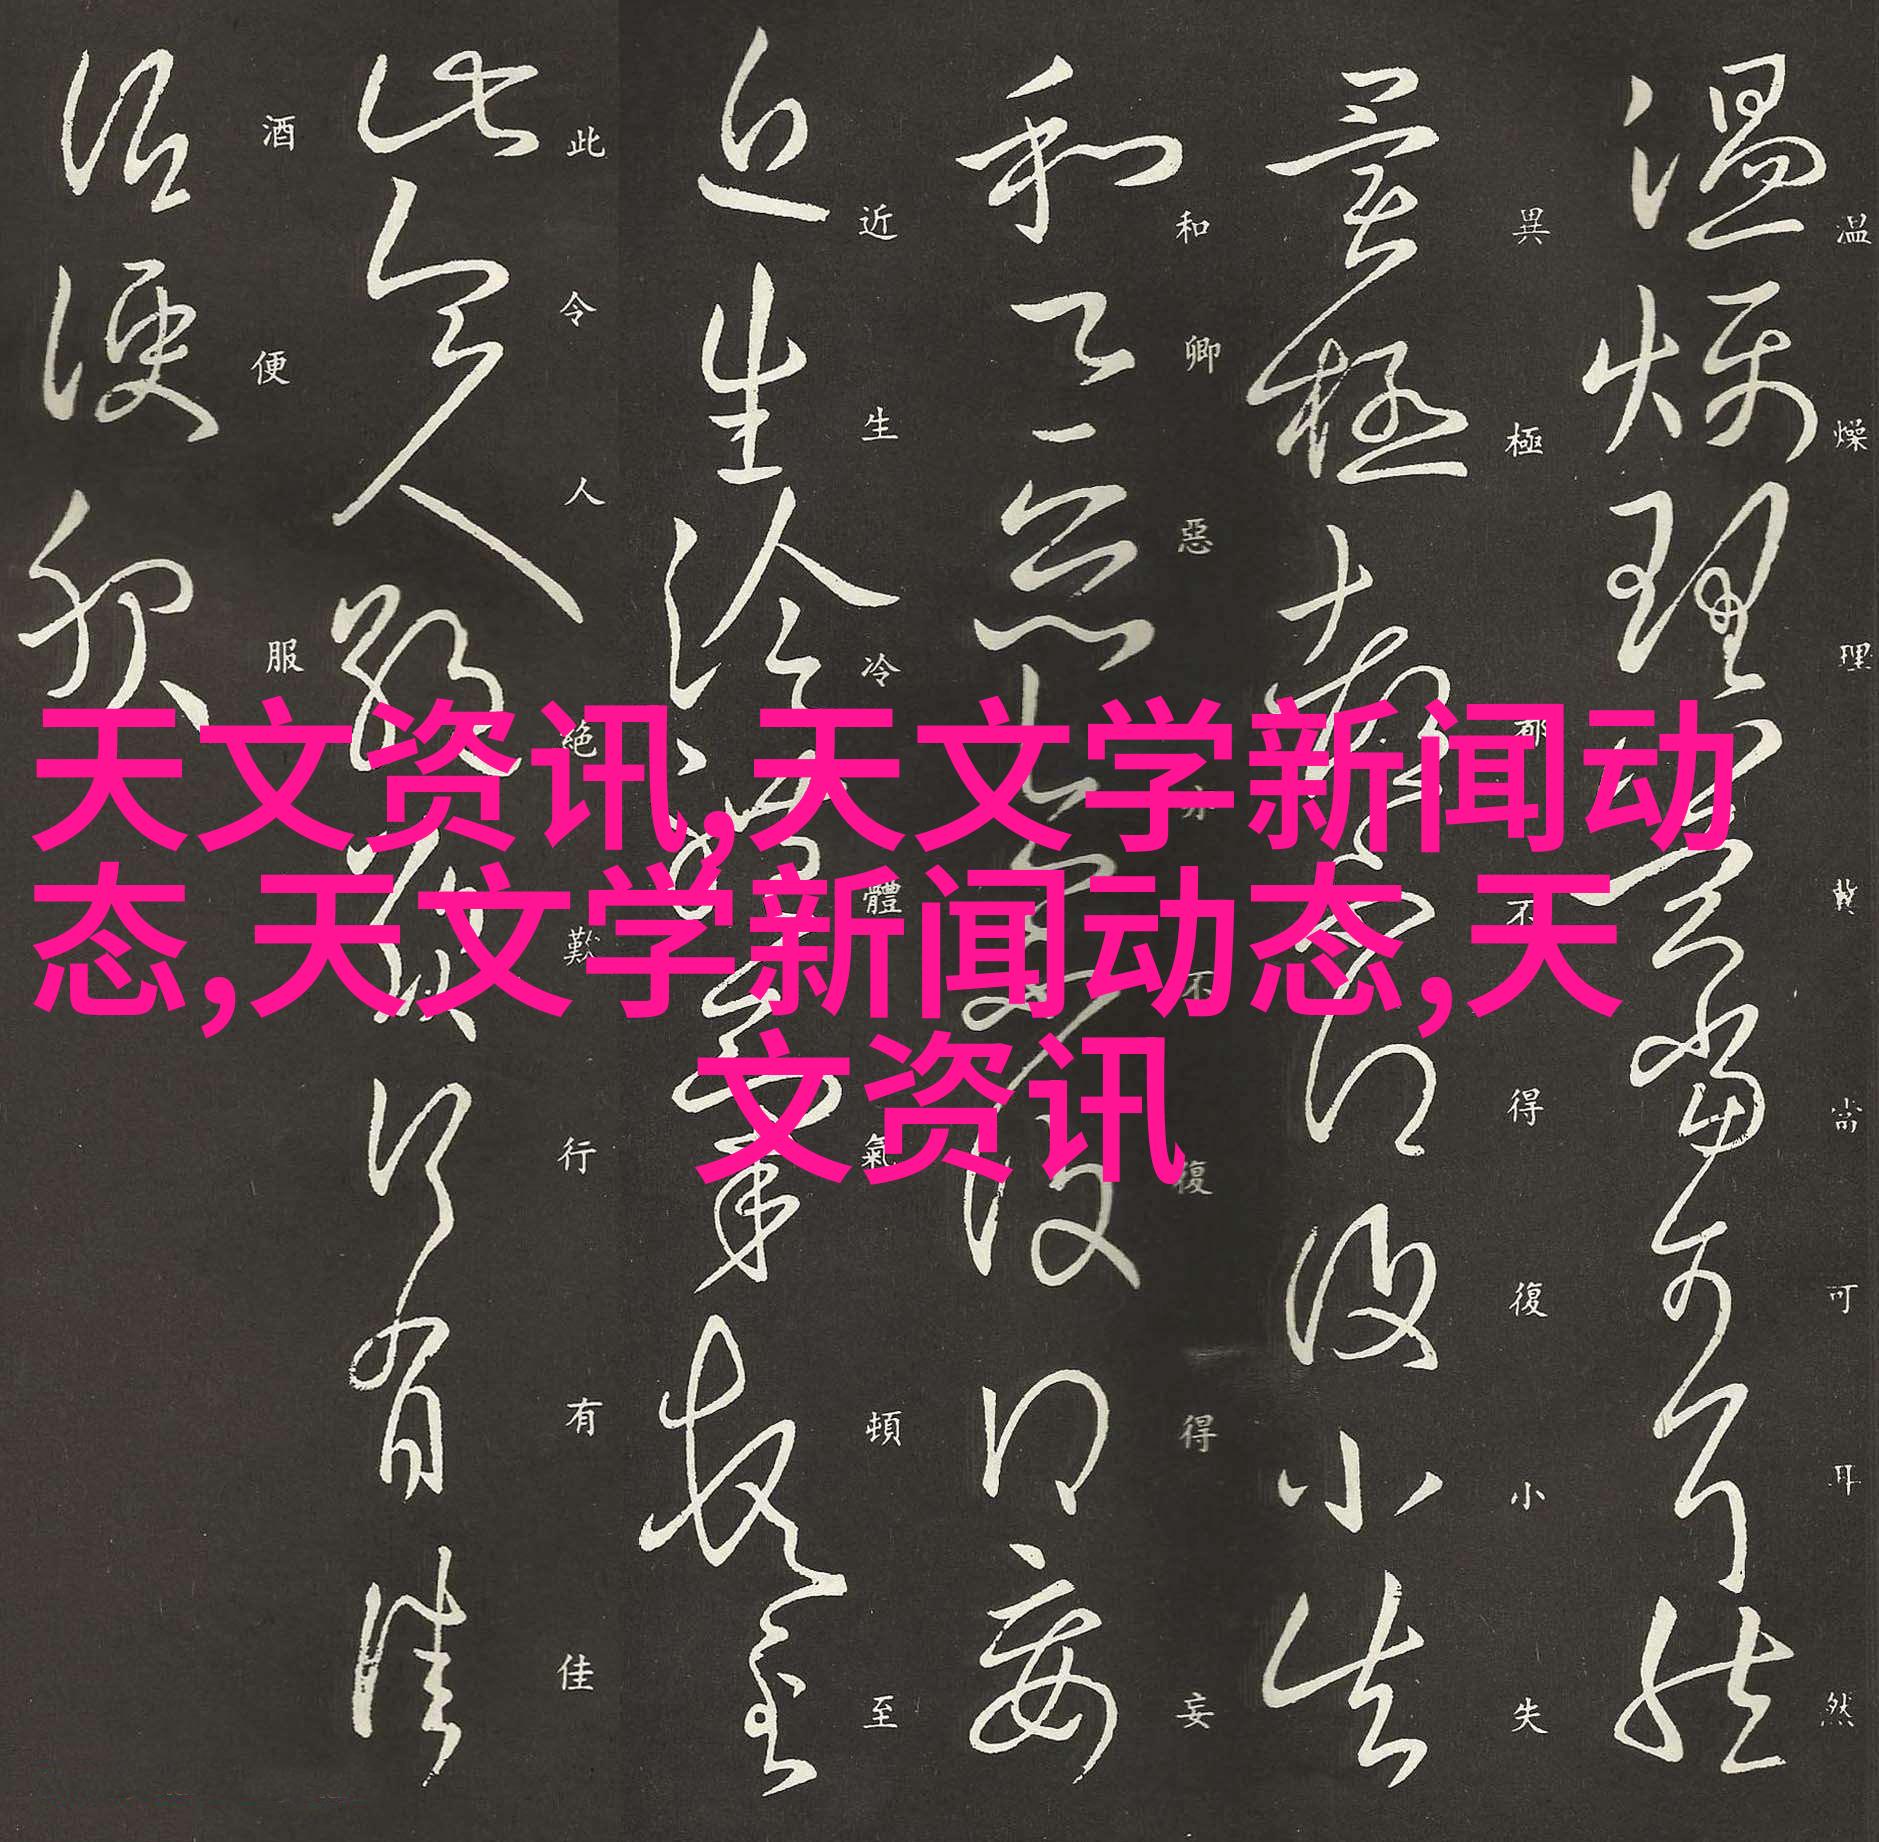 温燥理冀當可耳然
異極都不得復小失
和卿惡亦不復得妄
近生冷體氣頓至
此令人絕歎行有佳
酒便服
天文资讯,天文学新闻动
态,天文学新闻动态,天
文资讯